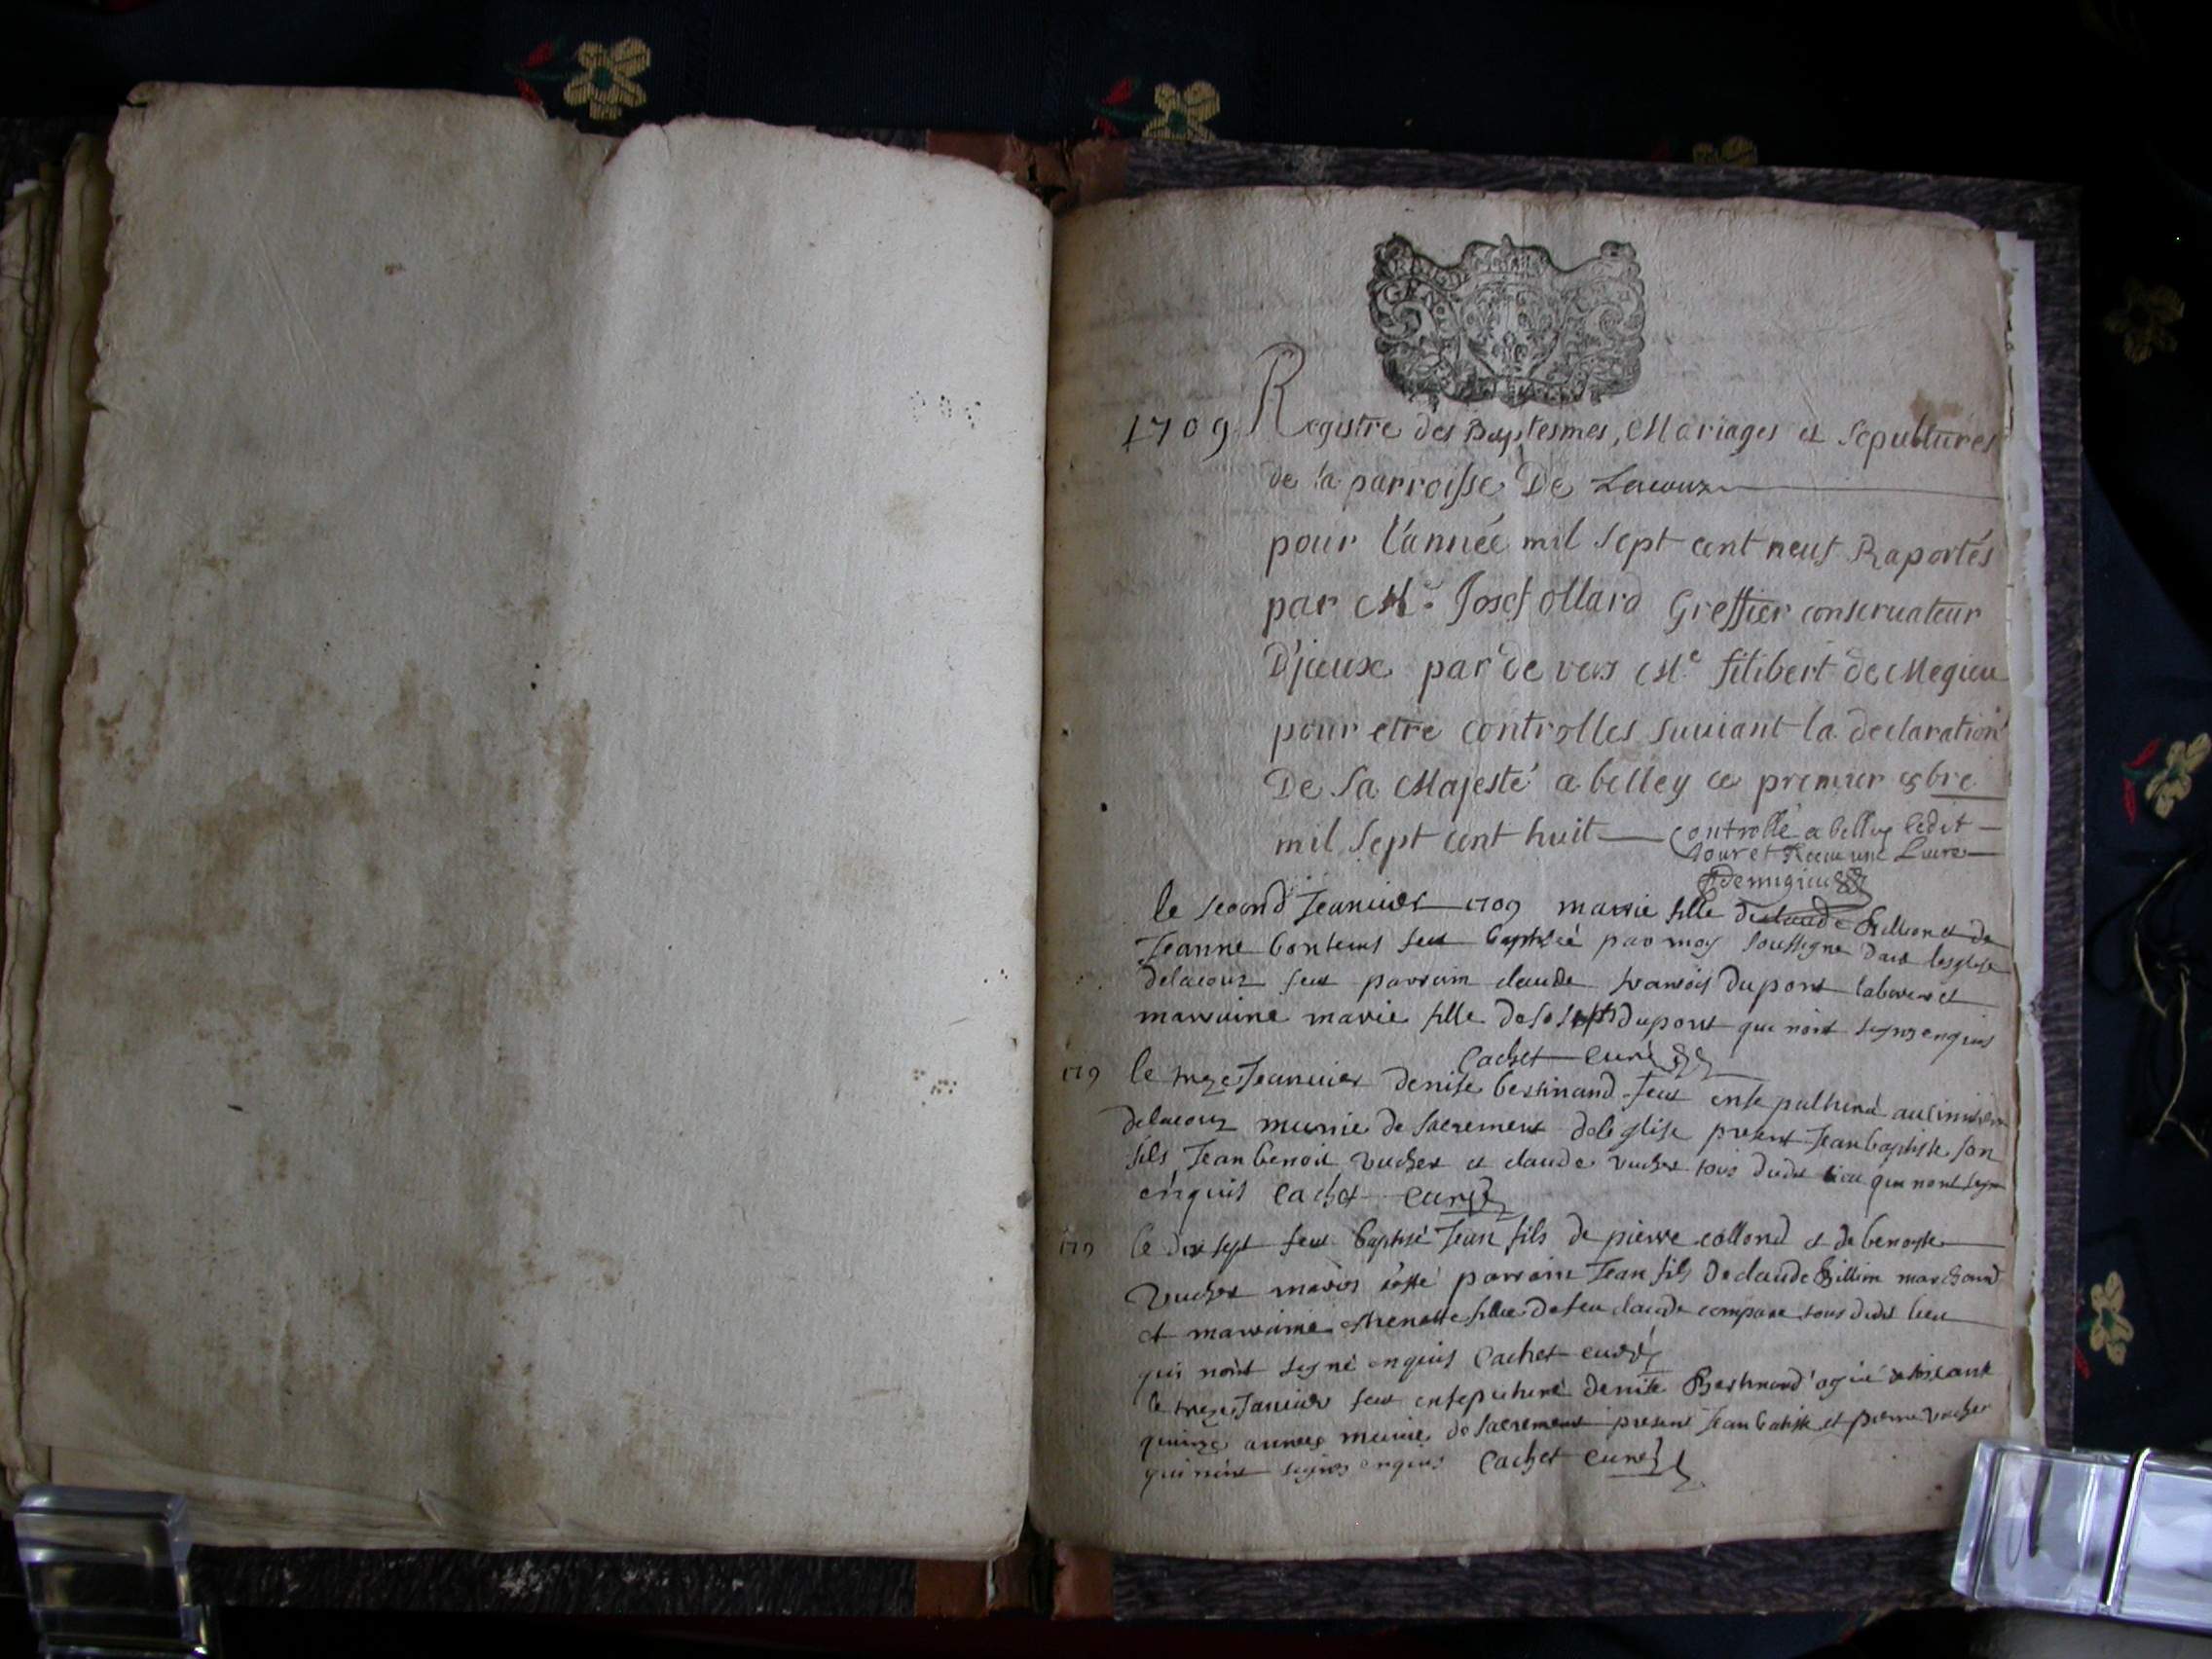 1709 Registre des Baptesmes, Mariages et Sepultures
de la parroisse De Lacoux
pour l'année mil sept cent neuf Raportés
par Me Josef ollard Greffier conservateur
D'iceux par de vers Me filibert de Megieu
pour etre controlles suivant la declaration
De Sa Majesté a belley ce premier 9bre
mil sept cent huit Controllé a belley ledit
Jour et Receu une Livre
Demigieu
le second Jeanuier 1709 marie fille de claude Billion et de
Jeanne bontems feut baptisé par moy soussigné dans lesglise
delacouz feut parrain claude francois dupont laboureur et
marraine marie fille de Joseph dupont qui nont signes enquis
Cachet curé
1709 le treze Jeanuier denise bertinand feut ensepulturé au cimitiere
delacouz munie de sacrement de leglise present Jean baptiste son
fils Jean benoit vucher et claude vucher tous dudit lieu qui nont signe
enquis Cachet curé
1709 le dix sept feut baptisé Jean fils de pierre collond et de benoyte
vucher maries esté parrain Jean fils de claude Billion marchand
et marraine fille de feu claude tous dudit lieu
qui nont signé enquis Cachet curé
le treze Januier feut ensepulturé denise Bertinand agié de soixante
quinze annees munie de sacrement present Jean batiste et pierre vucher
qui nont signes enquis Cachet curé